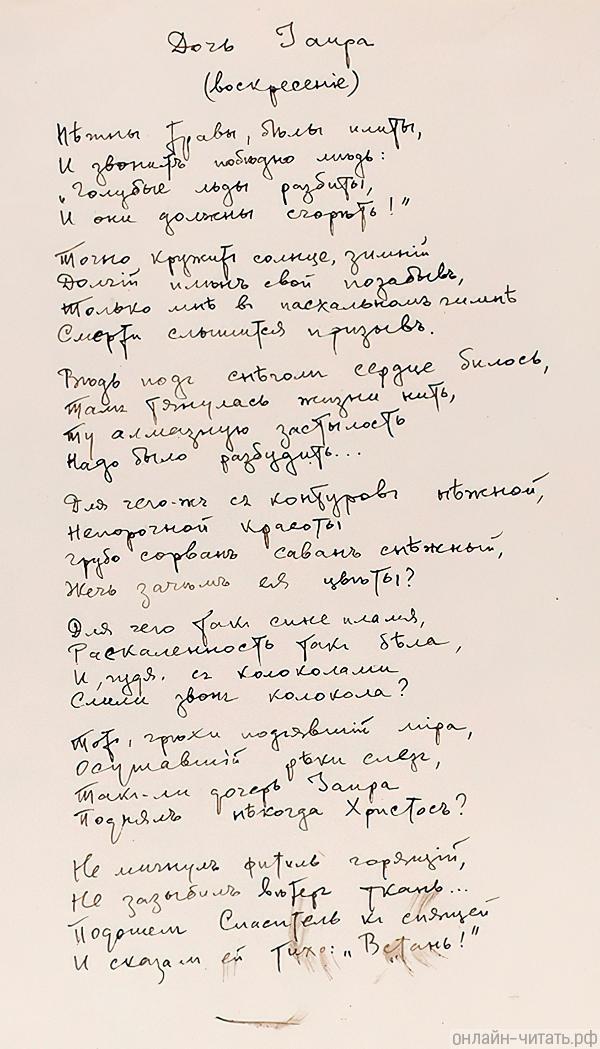 Дочь Іаира
(воскресеніе)
Нѣжны травы, бѣлы плиты,
И звонитъ побѣдно мѣдь:
„Голубые льды разбиты,
И они должны сгорѣть!“
Точно кружитъ солнце, зимній
Долгій плѣнъ свой позабывъ,
Только мнѣ въ пасхальномъ гимнѣ
Смерти слышится призывъ.
Вѣдь подъ снѣгомъ сердце билось,
Тамъ тянулась жизни нить,
Ту алмазную застылость
Надо было разбудить...
Для чего-жъ съ контуровъ нѣжной,
Непорочной красоты
Грубо сорванъ саванъ снѣжный,
Жечь зачѣмъ ея цвѣты?
Для чего такъ сине пламя,
Раскаленность такъ бѣла,
И, гудя, съ колоколами
Слили звонъ колокола?
Тотъ, грѣхи подъявшій міра,
Осушавшій рѣки слезъ,
Такъ-ли дочерь Іаира
Поднялъ нѣкогда Христосъ?
Не мигнулъ фитиль горящій,
Не зазыбилъ вѣтеръ ткань...
Подошелъ Спаситель къ спящей
И сказалъ ей тихо: „Встань!“
онлайн-читать.рф